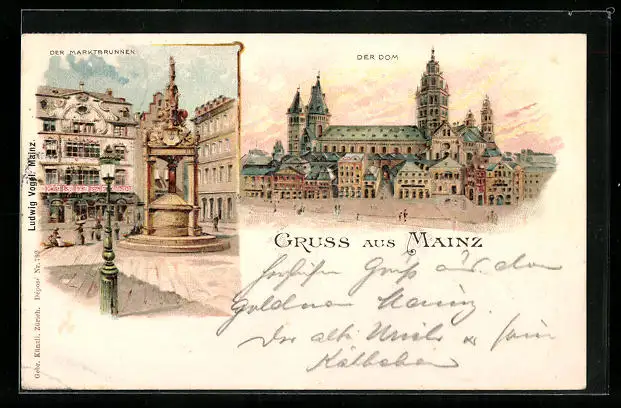 DER MARKTBRUNNEN
DER DOM
Ludwig Vogel. Mainz.
Gebr. Künzli. Zürich. Dépose Nr. 792
GRUSS AUS MAINZ
Herzlichen Gruß aus dem
Goldnen Mainz
Der alte & sein
Kälbchen